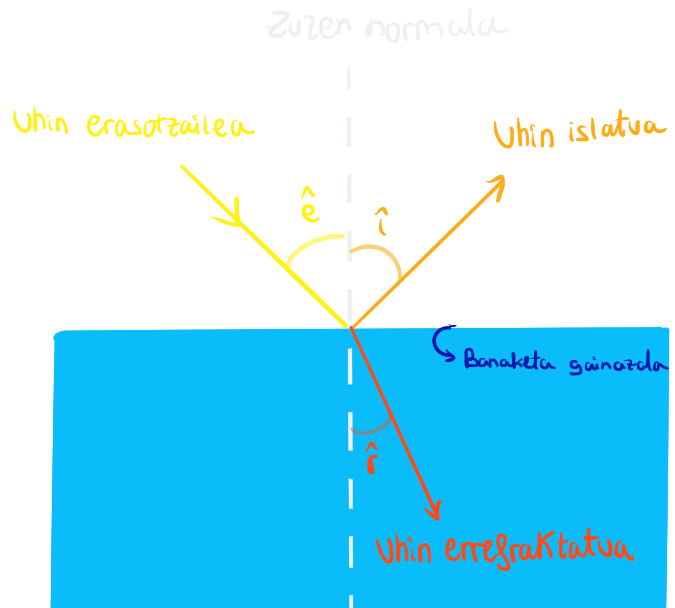 Zuzen normala
Uhin erasotzailea
Uhin islatua
ê
î
Banaketa gainazala
r̂
Uhin errefraktatua